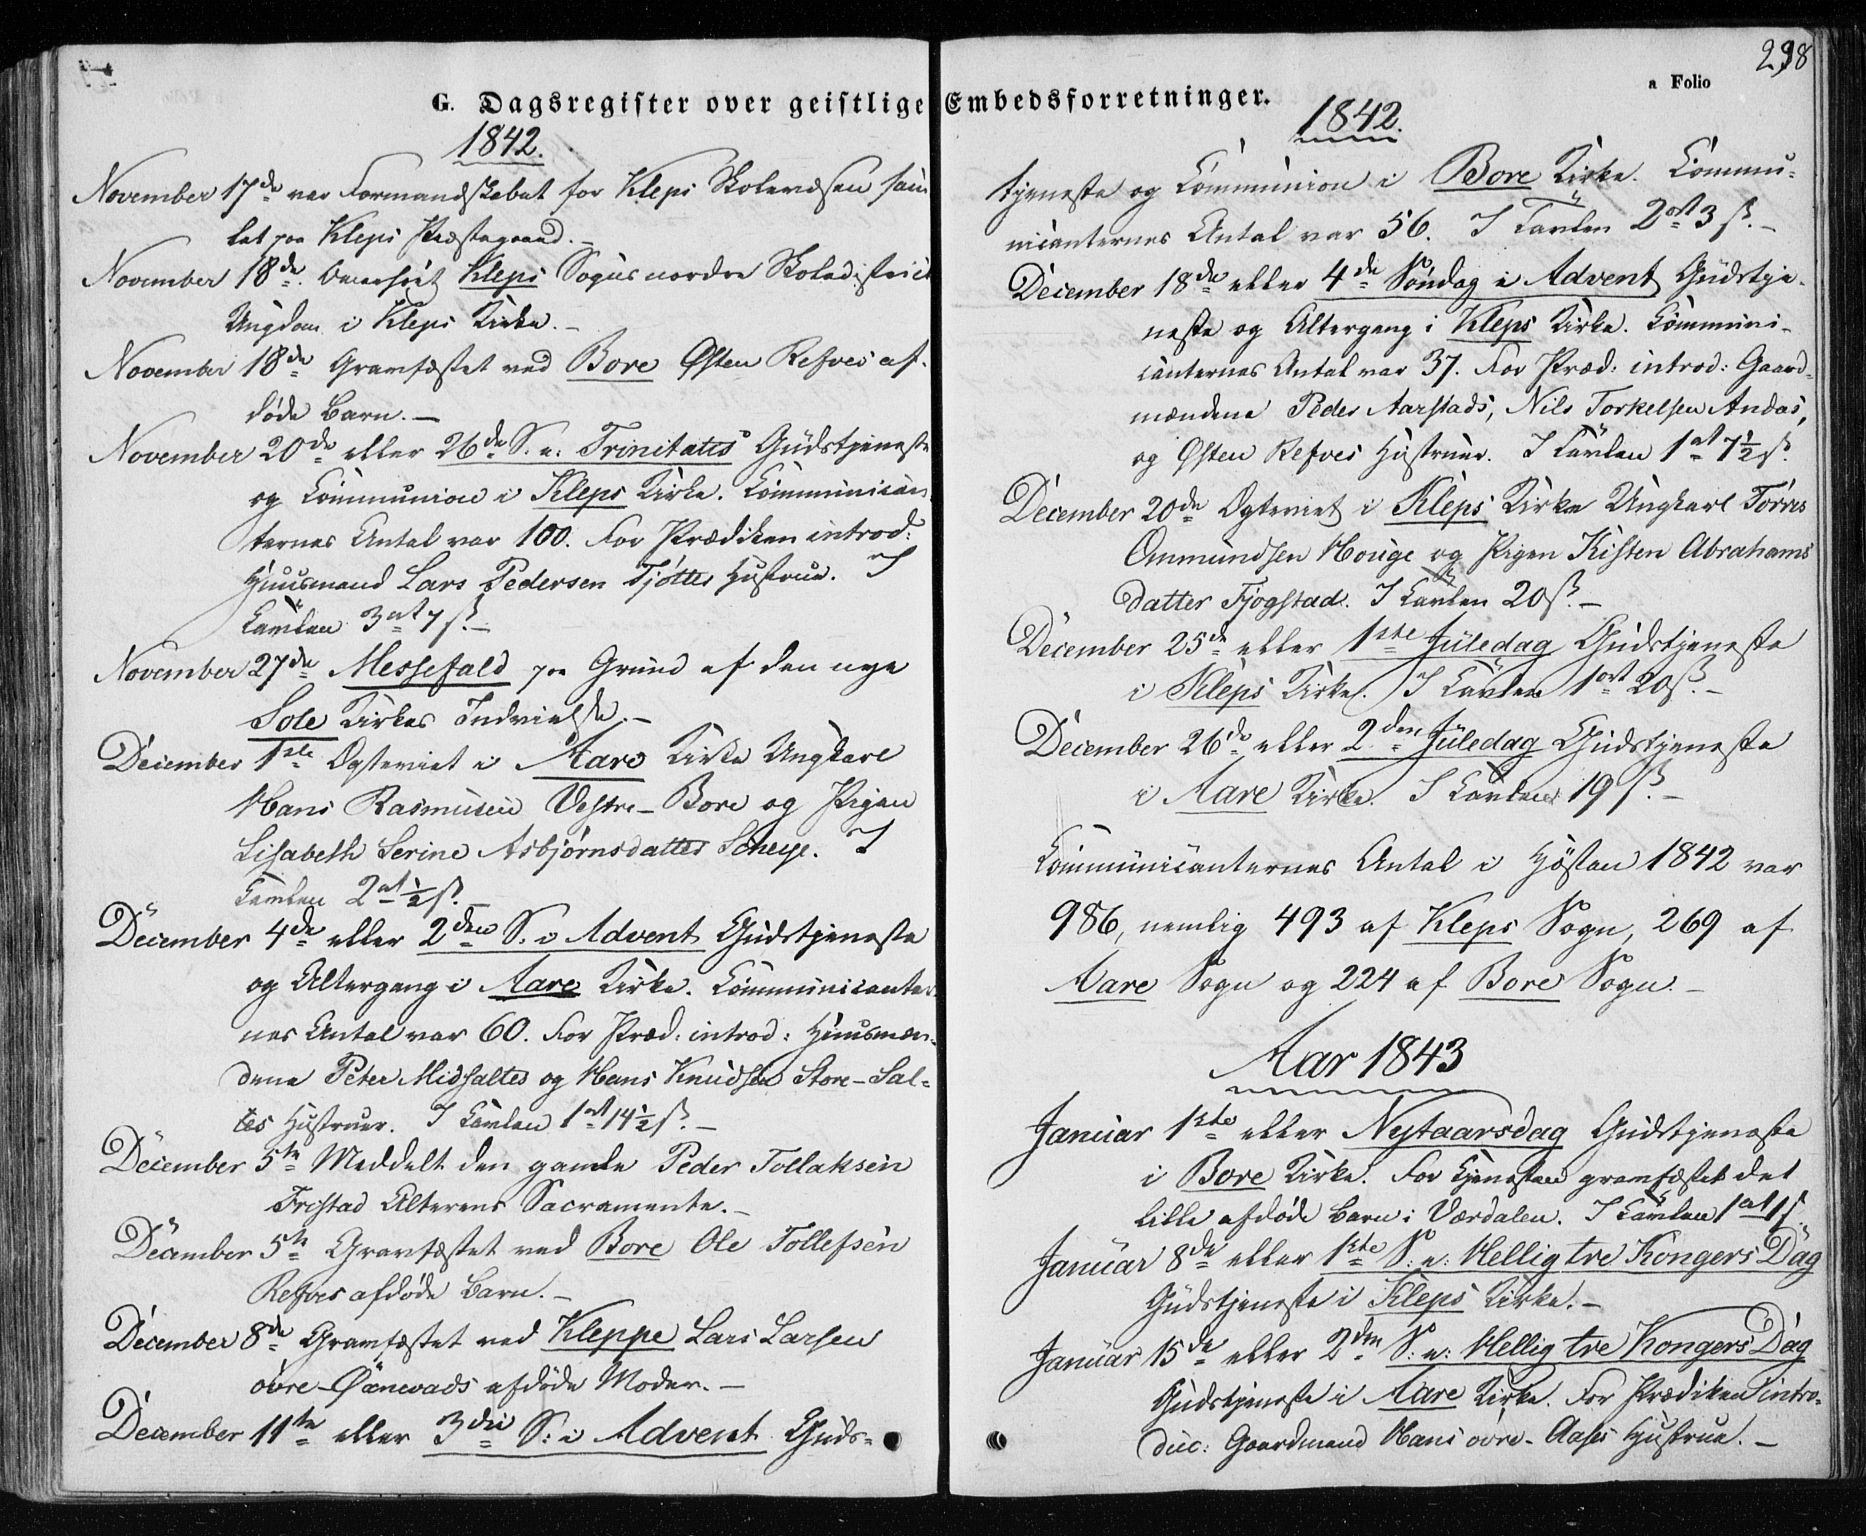 G. Dagsregister over geistlige
1842.
November 17de var Formandskabet for Kleps Skolevæsen sam
let paa Kleps Præstegaard.
November 18de. Overhørt Kleps Sogns nordre Skoledistrict
Ungdom i Kleps Kirke.
November 18de Gravfæstet ved Bore Østen Refves af-
døde Barn.
November 20de eller 26de S. e: Trinitatis Gudstjeneste
og Communion i Kleps Kirke. Communican
ternes Antal var 100. For Prædiken introd:
Huusmand Lars Pedersen Tjøttes Hustrue. I
Tavlen 3 ort 7 ß.
November 27de Messefald paa Grund af den nye
Sole Kirkes Indvielse.
December 1ste Egteviet i Aare Kirke Ungkarl
Hans Rasmusen Vestre-Bore og Pigen
Lisabeth Serine Asbjørnsdatter Scheie. I
Tavlen 2 ort ½ ß.
December 4de eller 2den S. i Advent Gudstjeneste
og Altergang i Aare Kirke. Communicanter
nes Antal var 60. For Præd: introd: Huusmæn-
dene Peter Midsaltes og Hans Knudsen Store-Sal-
tes Hustruer. I Tavlen 1 ort 14½ ß.
December 5te Meddelt den gamle Peder Tollaksen
Fristad Alterens Sacramente.
December 5te Gravfæstet ved Bore Ole Tollefsen
Refves afdøde Barn.
December 8de Gravfæstet ved Kleppe Lars Larsen
øvre-Øxnevads afdøde Moder.
December 11te eller 3die S: i Advent Guds-
a Folio
298
Embedsforretninger.
1842.
tjeneste og Communion i Bore Kirke. Commu-
nicanternes Antal var 56. I Tavlen 2 ort 3 ß.
December 18de eller 4de Søndag i Advent Gudstje-
neste og Altergang i Kleps Kirke. Communi-
canternes Antal var 37. For Præd: introd: Gaard-
mændene Peder Aarstads, Nils Torkelsen Andas,
og Østen Refves Hustruer. I Tavlen 1 ort 7½ ß.
December 20de Egteviet i Kleps Kirke Ungkarl Torres
Ommundsen Houge og Pigen Kisten Abrahams
datter Fjogstad. I Tavlen 20 ß.
December 25de eller 1ste Juledag Gudstjeneste
i Kleps Kirke. I Tavlen 1 ort 20 ß.
December 26de eller 2den Juledag Gudstjeneste
i Aare Kirke. I Tavlen 19 ß.
Communicanternes Antal i Høsten 1842 var
986, nemlig 493 af Kleps Sogn, 269 af
Aare Sogn og 224 af Bore Sogn.
Aar 1843
Januar 1ste eller Nytaarsdag Gudstjeneste
i Bore Kirke. For Tjenesten gravfæstet det
lille afdøde Barn i Værdalen. I Tavlen 1 ort 1 ß.
Januar 8de eller 1ste S: e: Hellig tre Kongers Dag
Gudstjeneste i Kleps Kirke.
Januar 15de eller 2den S: e: Hellig tre Kongers Dag
Gudstjeneste i Aare Kirke. For Prædiken intro-
duc: Gaardmand Hans øvre-Aases Hustrue.